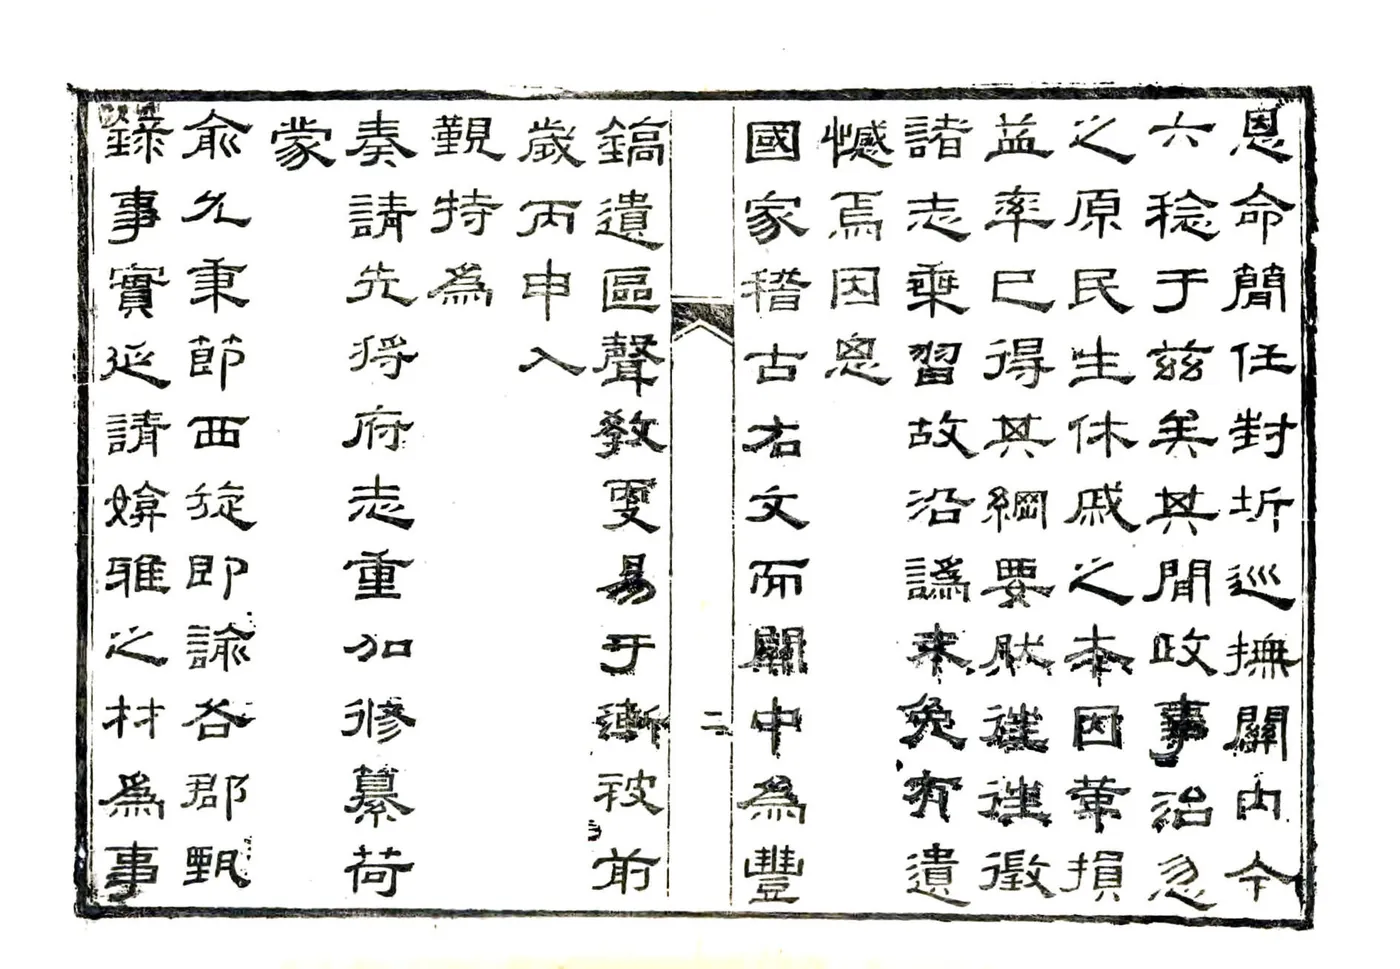 恩命簡任封圻巡撫關內今
六稔于茲矣其間政事治忽
之原民生休戚之本因革損
益率已得其綱要然往往徵
諸志乘習故沿譌未免有遺
憾焉因思
國家稽古右文而關中為豐
二
鎬遺區聲教更易于漸被前
歲丙申入
覲特為
奏請先將府志重加修纂荷
蒙
俞允秉節西旋即諭各郡甄
錄事實延請媕雅之材為事